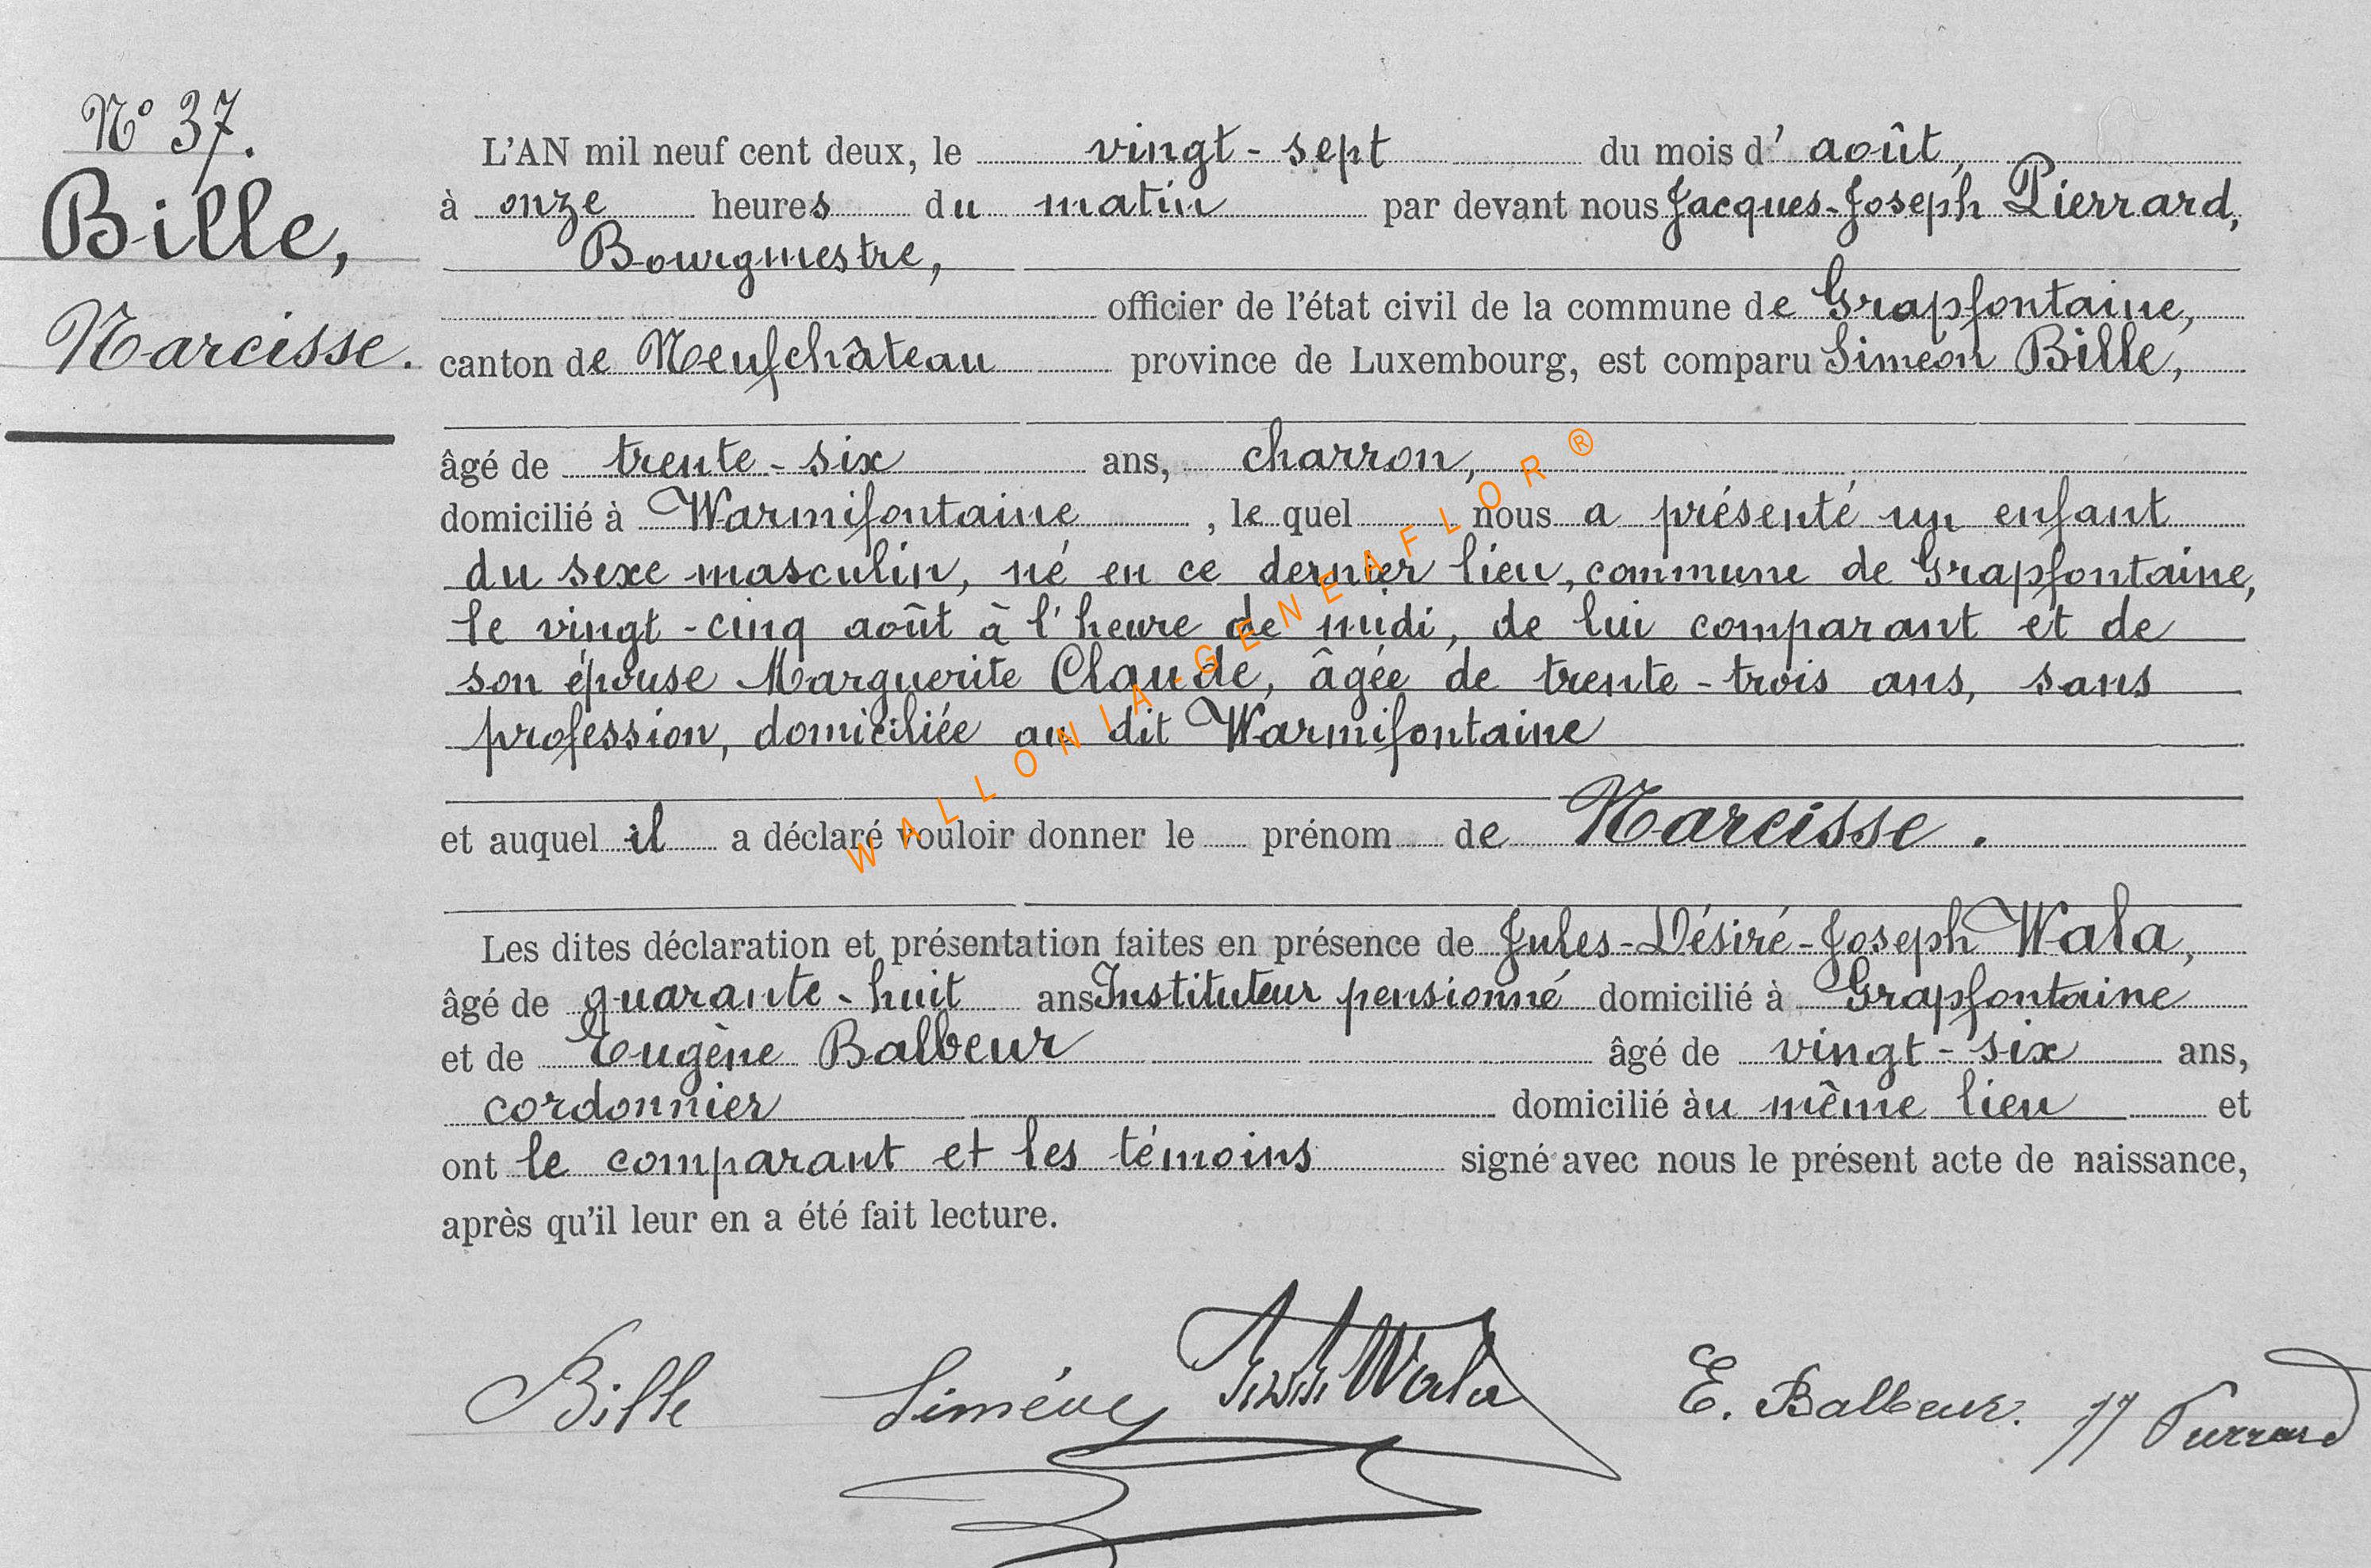 N° 37.
Bille,
Narcisse.
L'AN mil neuf cent deux, le vingt-sept du mois d'août,
à onze heures du matin par devant nous Jacques-Joseph Pierrard,
Bourgmestre,
officier de l'état civil de la commune de Grapfontaine,
canton de Neufchâteau province de Luxembourg, est comparu Siméon Bille,
âgé de trente-six ans, charron,
domicilié à Warmifontaine, le quel nous a présenté un enfant
du sexe masculin, né en ce dernier lieu, commune de Grapfontaine,
le vingt-cinq août à l'heure de midi, de lui comparant et de
son épouse Marguerite Claude, âgée de trente-trois ans, sans
profession, domiciliée au dit Warmifontaine
et auquel il a déclaré vouloir donner le prénom de Narcisse.
Les dites déclaration et présentation faites en présence de Jules-Désiré-Joseph Wala,
âgé de quarante-huit ans Instituteur pensionné domicilié à Grapfontaine
et de Eugène Balbeur âgé de vingt-six ans,
cordonnier domicilié àu même lieu et
ont le comparant et les témoins signé avec nous le présent acte de naissance,
après qu'il leur en a été fait lecture.
Bille Siméon Wala E. Balbeur. JJ Pierrard
WALLONIA-GENEAFLOR ®